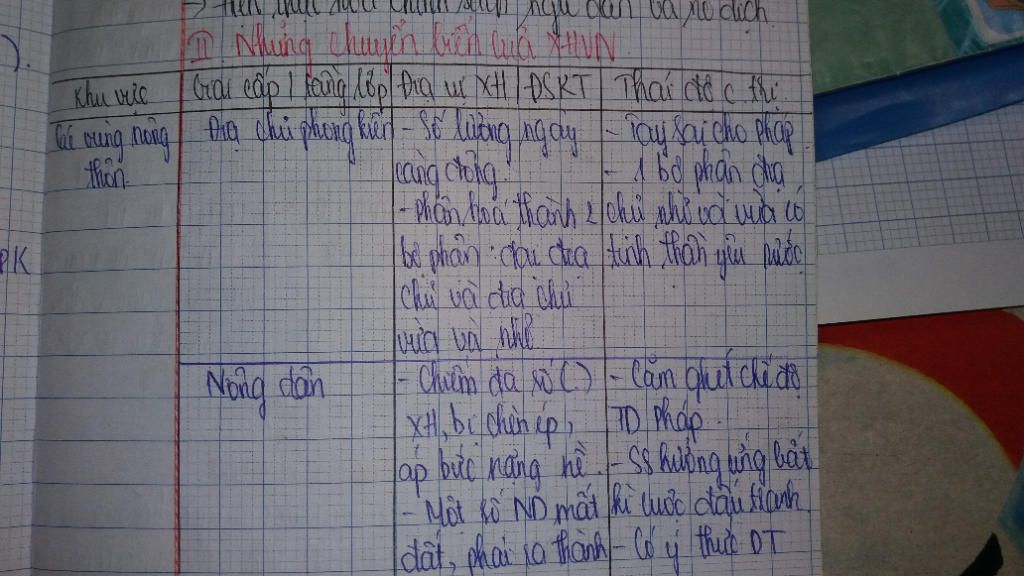 → nền trục xuất chính sách ngu dân và nô dịch.
II Những chuyển biến của XHVN
Khu vực
Giai cấp / tầng lớp
Địa vị XH / ĐSKT
Thái độ c.trị
Các vùng nông
thôn
Địa chủ phong kiến
- Số lượng ngày
càng đông.
- phân hoá thành 2
bộ phận : đại địa
chủ và địa chủ
vừa và nhỏ
- Tay sai cho pháp
- 1 bộ phận địa
chủ nhỏ và vừa có
tinh thần yêu nước
PK
Nông dân
- Chiếm đa số (.)
XH, bị chèn ép,
áp bức nặng nề.
- Một số ND mất
đất, phải ra thành
- Căm ghét chế độ
TD pháp.
- SS hưởng ứng bất
kì cuộc đấu tranh
- Có ý thức DT